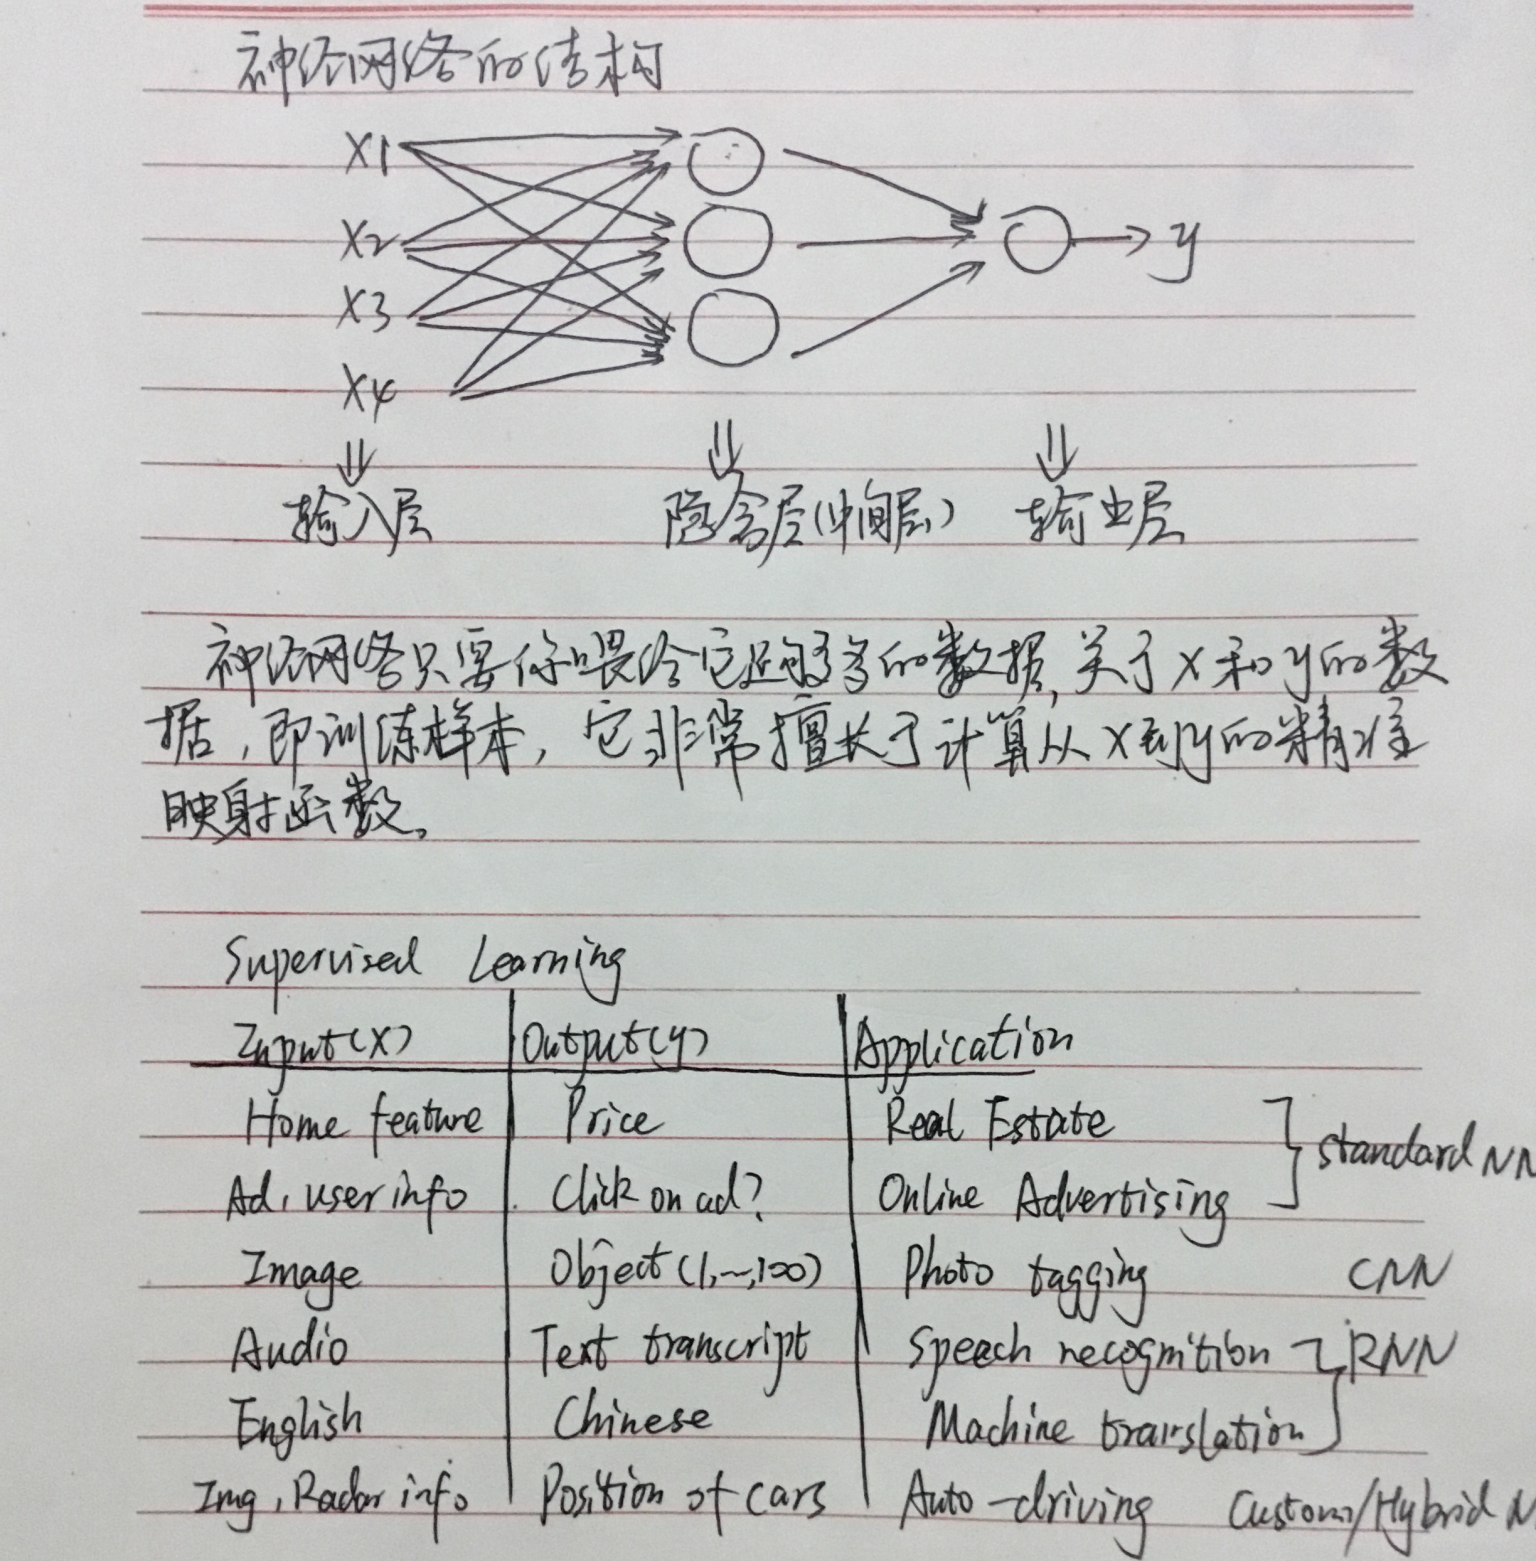 神经网络的结构
x1
x2
y
x3
x4
输入层 隐含层(中间层) 输出层
神经网络只要你喂给它足够多的数据,关于x和y的数
据,即训练样本,它非常擅长于计算从x到y的精准
映射函数。
Supervised Learning
Input(x) Output(y) Application
Home feature Price Real Estate standard NN
Ad, user info Click on ad? Online Advertising
Image Object(1,~,100) Photo tagging CNN
Audio Text transcript Speech recognition RNN
English Chinese Machine translation
Img, Radar info Position of cars Auto-driving Custom/Hybrid N